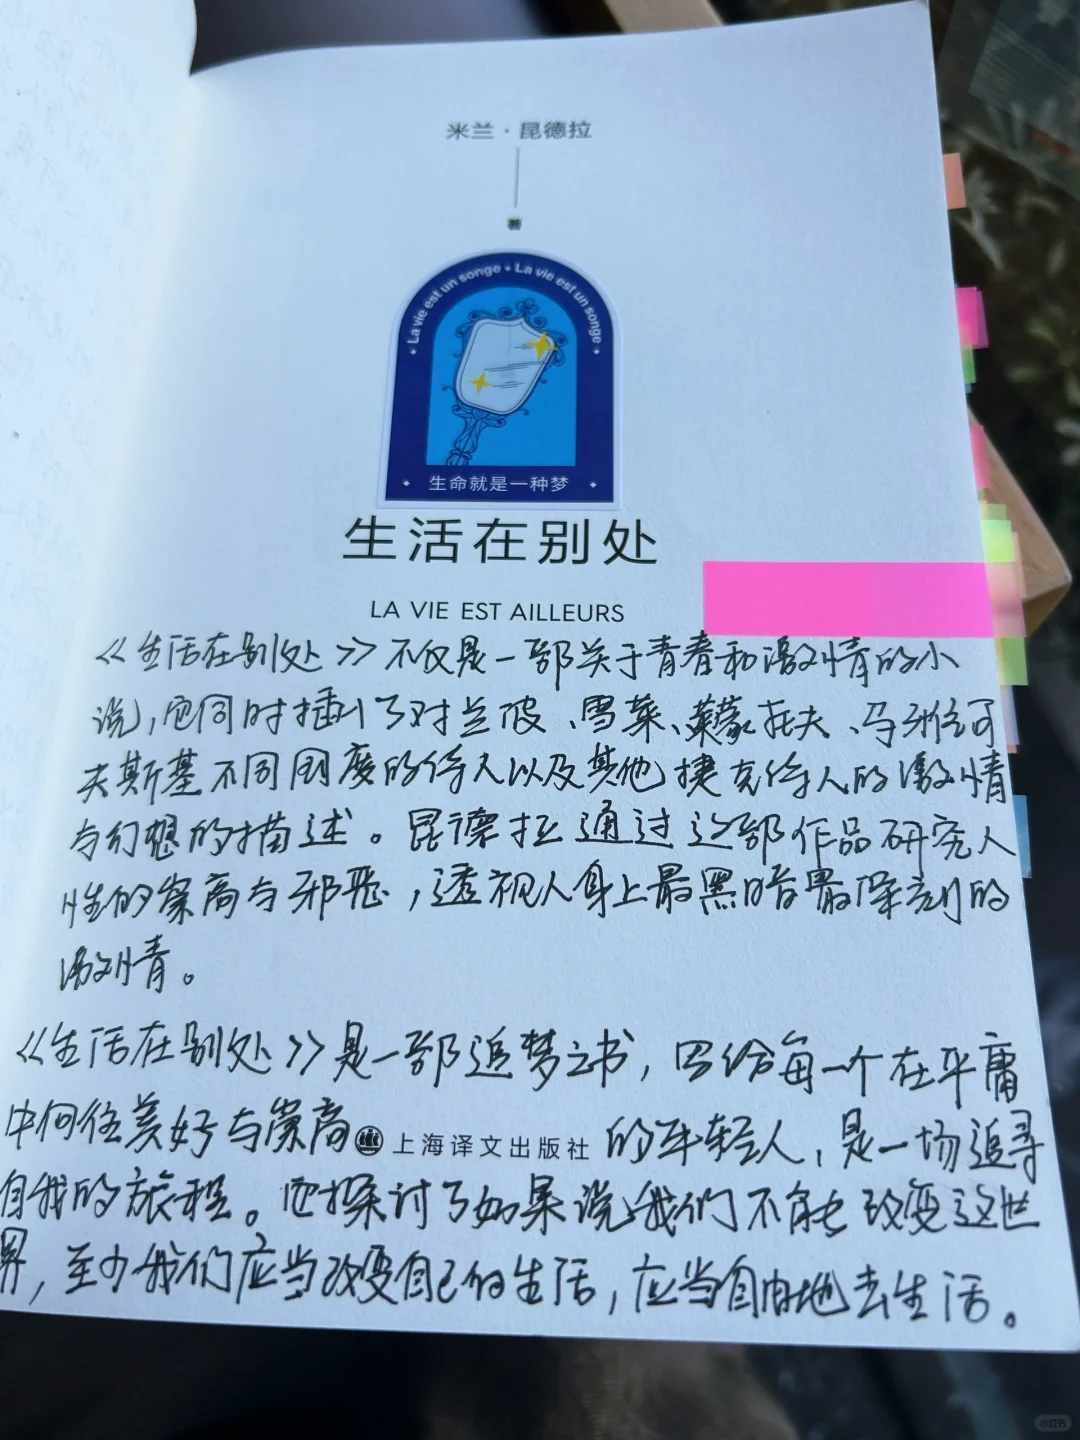 米兰·昆德拉
著
La vie est un songe • La vie est un songe
生命就是一种梦
生活在别处
LA VIE EST AILLEURS
《生活在别处》不仅是一部关于青春和激情的小
说,他同时插叙了对兰波、雪莱、莱蒙托夫、马列维可
夫斯基不同国度的诗人以及其他捷克诗人的激情
与幻想的描述。昆德拉通过这部作品研究人
性的崇高与邪恶,透视人身上最黑暗最深刻的
激情。
《生活在别处》是一部追梦之书,写给每一个在平庸
中向往美好与崇高
上海译文出版社
的年轻人,是一场追寻
自我的旅程。他探讨了如果说我们不能改变这世
界,至少我们应当改变自己的生活,应当自由地去生活。
小红书